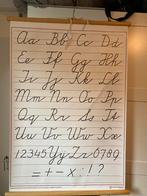 Aa Bb Cc Dd
Ee Ff Gg Hh
Ii Jj Kk Ll
Mm Nn Oo Pp
Qq Rr Ss Tt
Uu Vv Ww Xx
12345 Yy Zz 67890
= + - x . ! ?